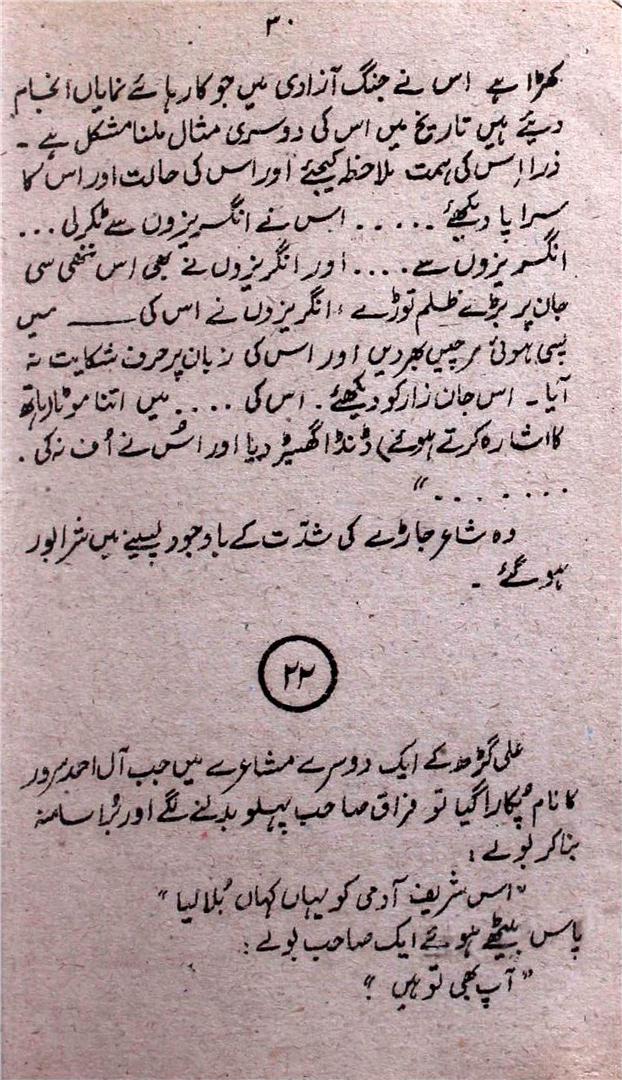 ۳۰
کھڑا ہے اس نے جنگ آزادی میں جو کارہائے نمایاں انجام
دیئے ہیں تاریخ میں اس کی دوسری مثال ملنا مشکل ہے ۔
ذرا اس کی ہمت ملاحظہ کیجئے اور اس کی حالت اور اس کا
سراپا دیکھئے ..... اس نے انگریزوں سے ٹکر لی ...
انگریزوں سے .... اور انگریزوں نے بھی اس ننھی سی
جان پر بڑے ظلم توڑے ، انگریزوں نے اس کی ــــــ میں
پسی ہوئی مرچیں بھر دیں اور اس کی زبان پر حرف شکایت نہ
آیا ۔ اس جان زار کو دیکھئے . اس کی .... میں اتنا موٹا (ہاتھ
کا اشارہ کرتے ہوئے) ڈنڈا گھسیڑ دیا اور اُس نے اُف نہ کی .
. . . . . . . "
وہ شاعر جاڑے کی شدّت کے باوجود پسینے میں شرابور
ہو گئے ۔
۲۲
علی گڑھ کے ایک دوسرے مشاعرے میں جب آل احمد سرور
کا نام پُکارا گیا تو فراق صاحب پہلو بدلنے لگے اور بُرا سا منہ
بنا کر بولے :
"اس شریف آدمی کو یہاں کہاں بُلا لیا "
پاس بیٹھے ہوئے ایک صاحب بولے :
"آپ بھی تو ہیں ؟"